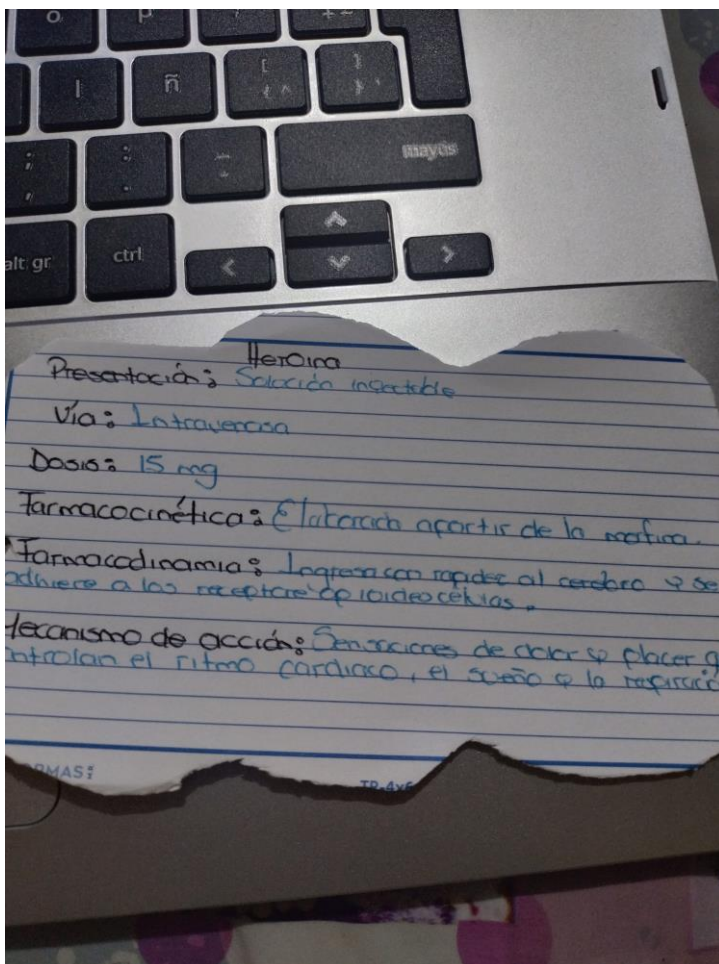 ñ
mayús
alt gr
ctrl
Heroina
Presentación: Solución inyectable
Vía: Intravenosa
Dosis: 15 mg
Farmacocinética: Elaborada apartir de la morfina.
Farmacodinamia: Ingresa con rapidez al cerebro y se
adhiere a los receptore opioideo células.
Mecanismo de acción: Sensaciones de dolor y placer q
ntrolan el ritmo cardiaco, el sueño y la respiració
ORMAS
TP-4x6